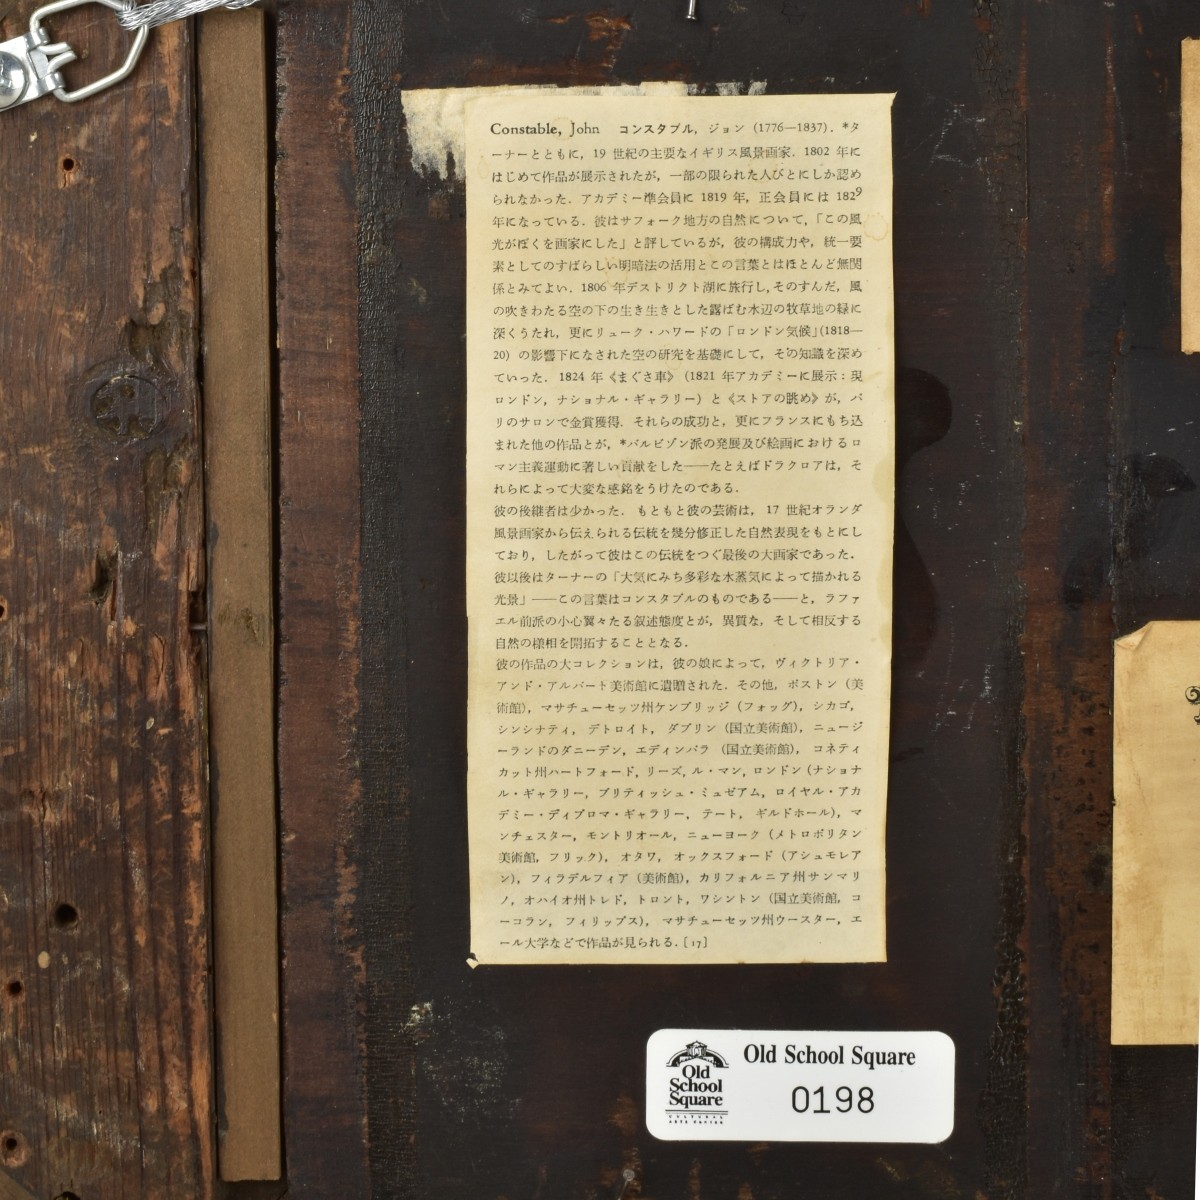 Constable, John コンスタブル, ジョン (1776—1837). *タ
ーナーとともに, 19 世紀の主要なイギリス風景画家. 1802 年に
はじめて作品が展示されたが, 一部の限られた人びとにしか認め
られなかった. アカデミー準会員に 1819 年, 正会員には 1829
年になっている. 彼はサフォーク地方の自然について,「この風
光がぼくを画家にした」と評しているが, 彼の構成力や, 統一要
素としてのすばらしい明暗法の活用とこの言葉とはほとんど無関
係とみてよい. 1806 年デストリクト湖に旅行し, そのすんだ, 風
の吹きわたる空の下の生き生きとした露ばむ水辺の牧草地の緑に
深くうたれ, 更にリューク・ハワードの「ロンドン気候」(1818—
20) の影響下になされた空の研究を基礎にして, その知識を深め
ていった. 1824 年《まぐさ車》 (1821 年アカデミーに展示：現
ロンドン, ナショナル・ギャラリー) と《ストアの眺め》が, パ
リのサロンで金賞獲得. それらの成功と, 更にフランスにもち込
まれた他の作品とが, *バルビゾン派の発展及び絵画におけるロ
マン主義運動に著しい貢献をした――たとえばドラクロアは, そ
れらによって大変な感銘をうけたのである.
彼の後継者は少かった. もともと彼の芸術は, 17 世紀オランダ
風景画家から伝えられる伝統を幾分修正した自然表現をもとにし
ており, したがって彼はこの伝統をつぐ最後の大画家であった.
彼以後はターナーの「大気にみち多彩な水蒸気によって描かれる
光景」――この言葉はコンスタブルのものである――と, ラファ
エル前派の小心翼々たる叙述態度とが, 異質な, そして相反する
自然の様相を開拓することとなる.
彼の作品の大コレクションは, 彼の娘によって, ヴィクトリア・
アンド・アルバート美術館に遺贈された. その他, ボストン (美
術館), マサチューセッツ州ケンブリッジ (フォッグ), シカゴ,
シンシナティ, デトロイト, ダブリン (国立美術館), ニュージ
ーランドのダニーデン, エディンバラ (国立美術館), コネティ
カット州ハートフォード, リーズ, ル・マン, ロンドン (ナショナ
ル・ギャラリー, ブリティッシュ・ミュゼアム, ロイヤル・アカ
デミー・ディプロマ・ギャラリー, テート, ギルドホール), マ
ンチェスター, モントリオール, ニューヨーク (メトロポリタン
美術館, フリック), オタワ, オックスフォード (アシュモレア
ン), フィラデルフィア (美術館), カリフォルニア州サンマリ
ノ, オハイオ州トレド, トロント, ワシントン (国立美術館, コ
ーコラン, フィリップス), マサチューセッツ州ウースター, エ
ール大学などで作品が見られる. [17]
Old School Square
0198
Old
School
Square
CULTURAL
ARTS CENTER